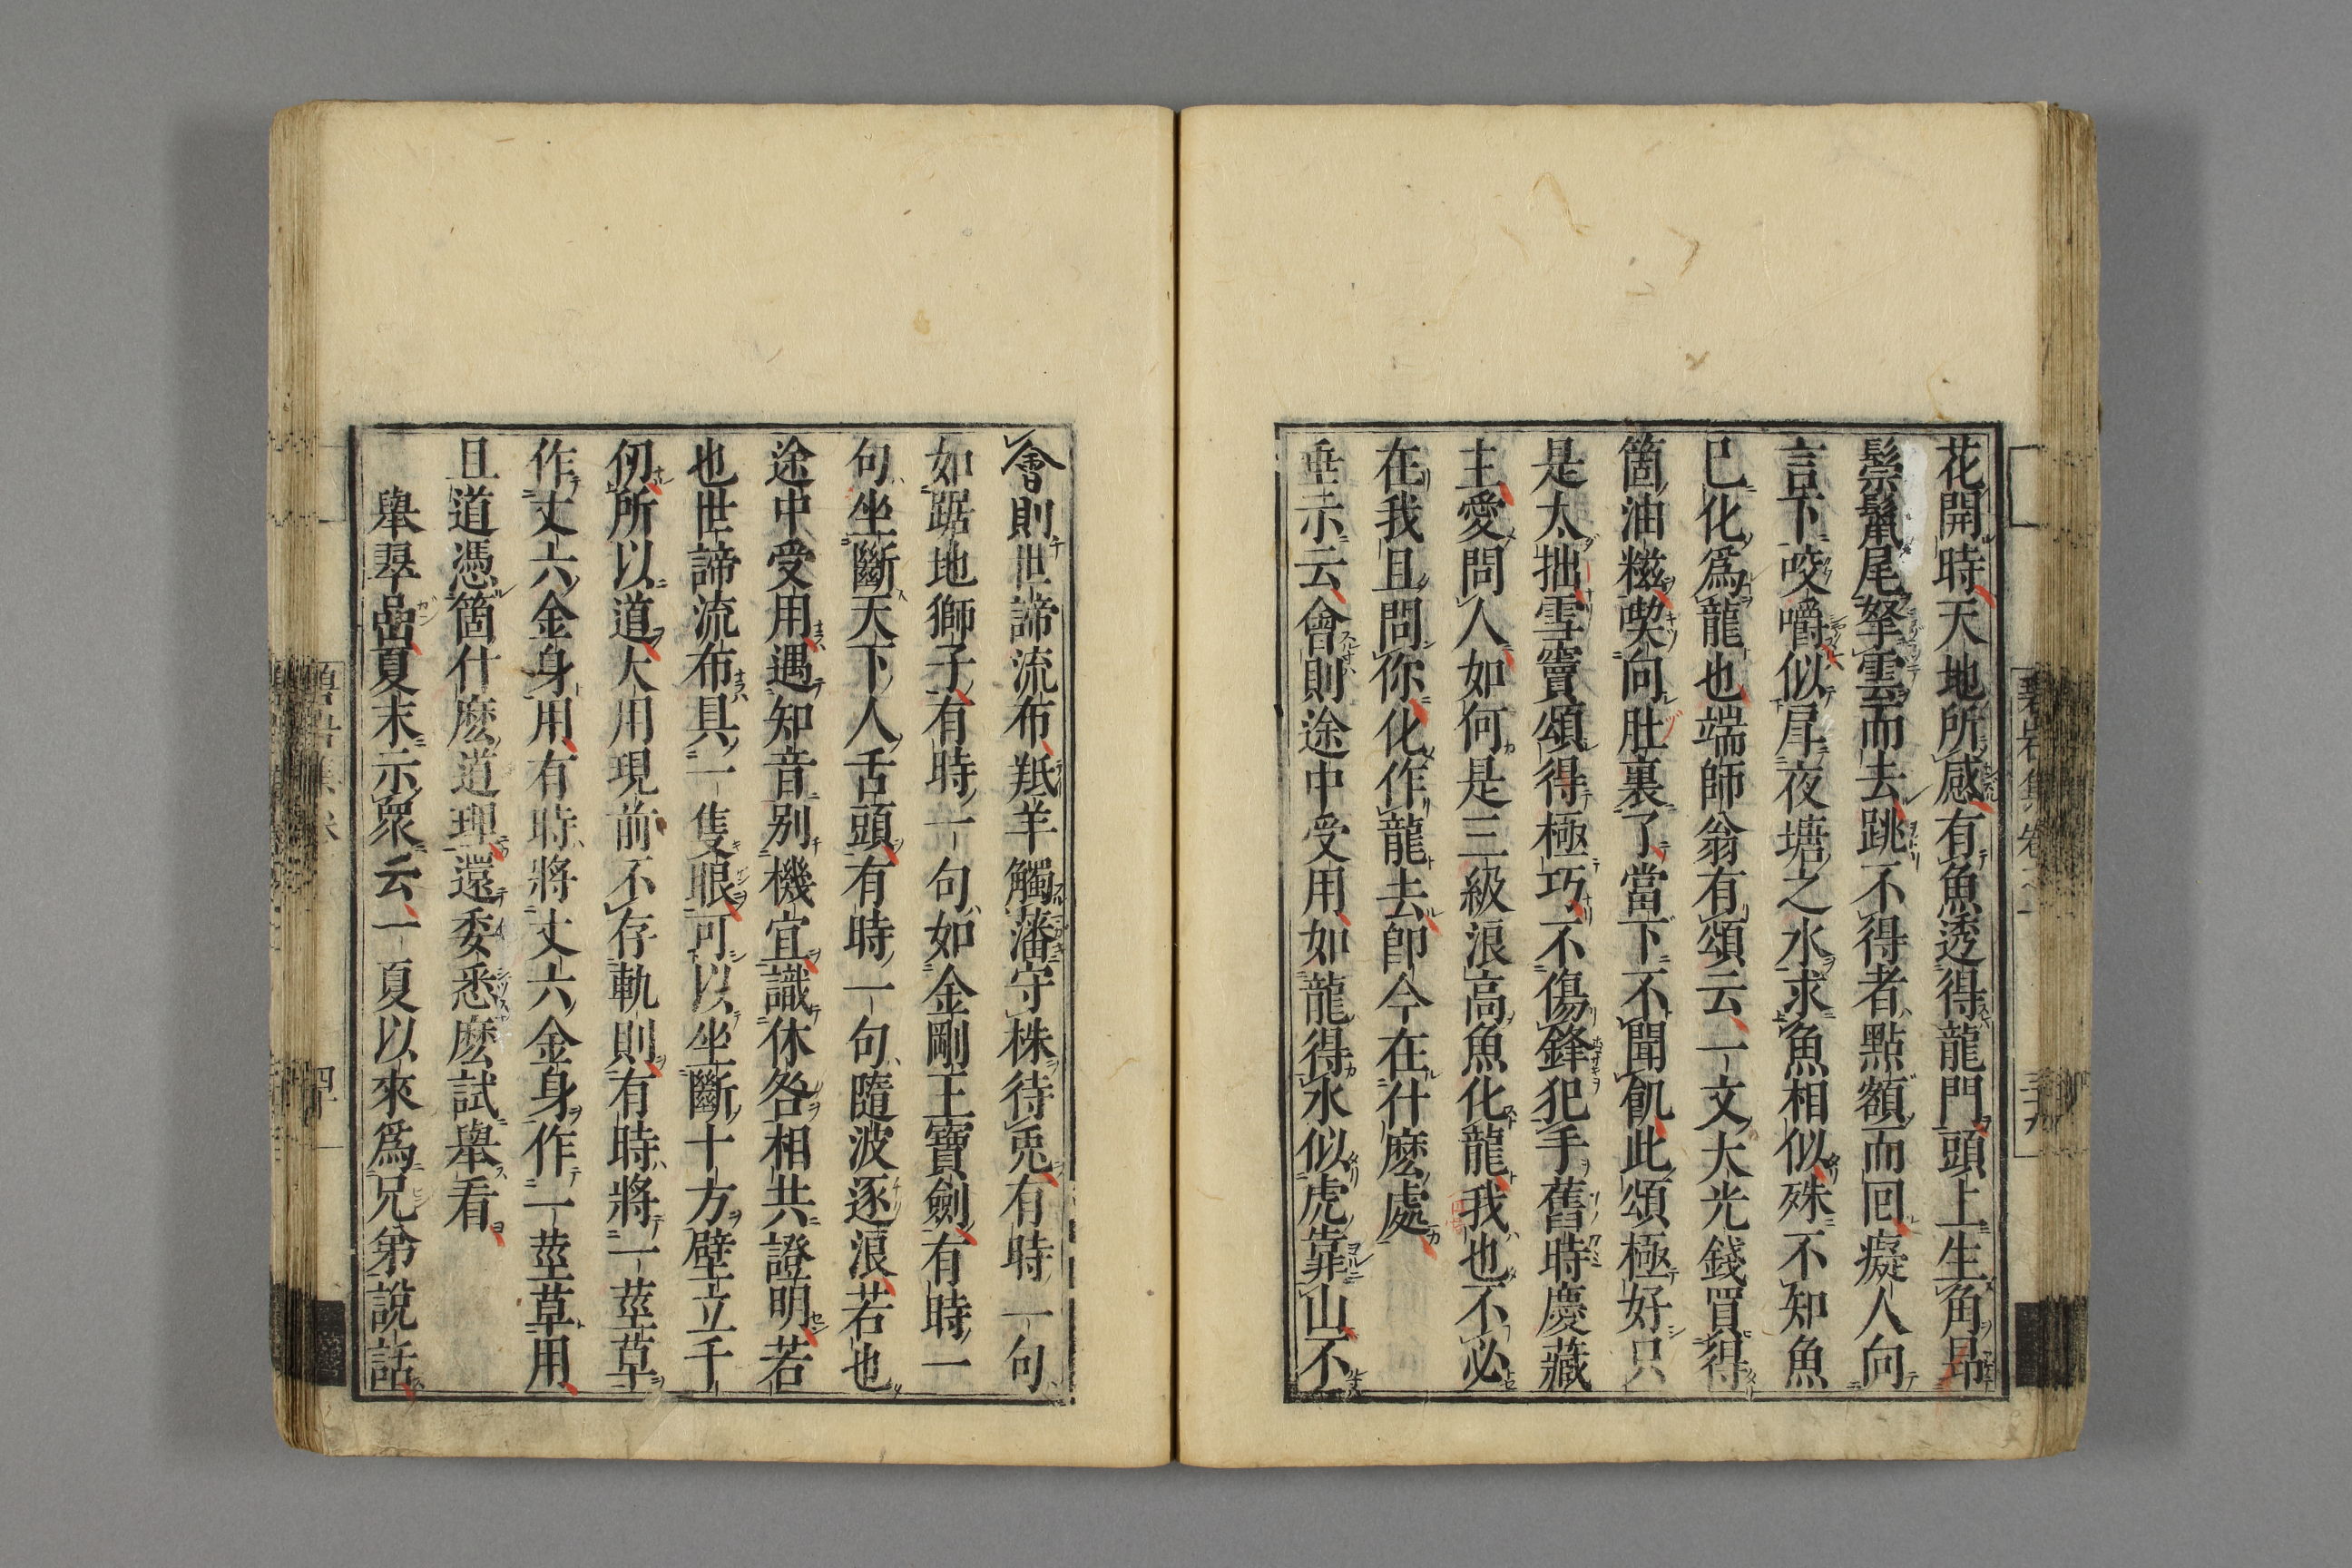 花開時天地所感有魚透得龍門頭上生角昂
鬃鬣尾拏雲而去跳不得者點額而囘癡人向
言下咬嚼似戽夜塘之水求魚相似殊不知魚
已化爲龍也端師翁有頌云一文大光錢買得
箇油糍喫向肚裏了當下不聞飢此頌極好只
是太拙雪竇頌得極巧不傷鋒犯手舊時慶藏
主愛問人如何是三級浪高魚化龍我也不必
在我且問你化作龍去卽今在什麽處
垂示云會則途中受用如龍得水似虎靠山不
會則世諦流布羝羊觸藩守株待兎有時一句
如踞地獅子有時一句如金剛王寶劍有時一
句坐斷天下人舌頭有時一句隨波逐浪若也
途中受用遇知音別機宜識休咎相共證明若
也世諦流布具一隻眼可以坐斷十方壁立千
仞所以道大用現前不存軌則有時將一莖草
作丈六金身用有時將丈六金身作一莖草用
且道憑箇什麽道理還委悉麽試舉看
舉翠嵓夏末示衆云一夏以來爲兄弟說話